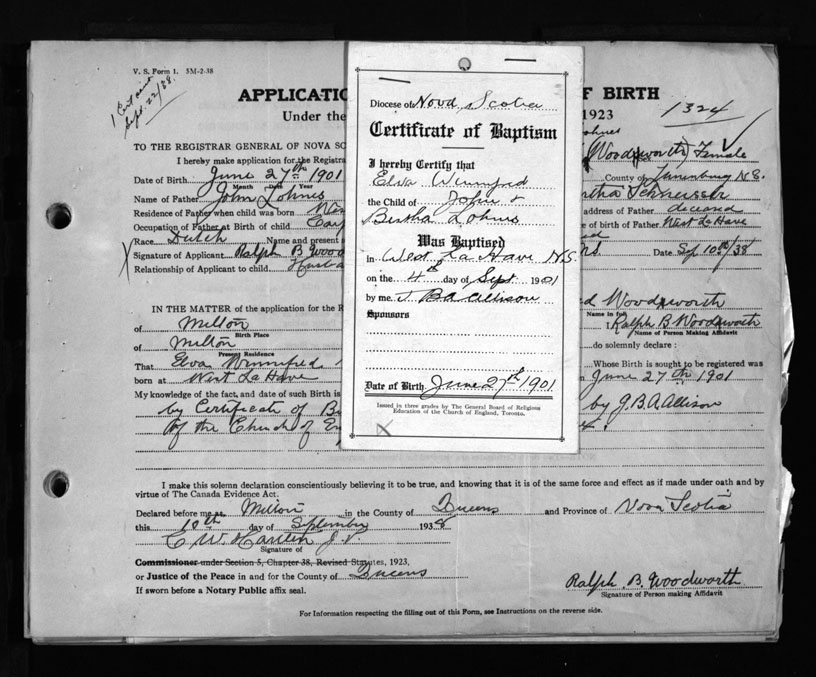 V. S. Form 1. 5M-2-38
1 Cert sent
Sept. 22/38.
APPLICATIO OF BIRTH
1324
Under the 1923
TO THE REGISTRAR GENERAL OF NOVA SC
I hereby make application for the Registra
(Woodsworth) Female
Date of Birth June 27th 1901 County of Lunenburg N.S.
Month Date Year
Name of Father John Lohnes
Residence of Father when child was born Wes address of Father deceased
Occupation of Father at Birth of child of birth of Father West La Have
Race Dutch Name and present
Signature of Applicant Ralph B. Wood Date Sep 10th/38
Relationship of Applicant to child Husba
IN THE MATTER of the application for the R d Woodsworth
of Milton
Birth Place
Name in full
of Milton I, Ralph B Woodsworth
Present Residence
Name of Person Making Affidavit
do solemnly declare :
That Elva Winnifred Whose Birth is sought to be registered was
born at West La Have on June 27th 1901
My knowledge of the fact, and date of such Birth is by J.B.A. Allison
by Certificate of B
of the Church of En
I make this solemn declaration conscientiously believing it to be true, and knowing that it is of the same force and effect as if made under oath and by
virtue of The Canada Evidence Act.
Declared before me at Milton in the County of Queens and Province of Nova Scotia
this 10th day of September 1938
Signature of
Commissioner under Section 5, Chapter 38, Revised Statutes, 1923,
or Justice of the Peace in and for the County of Queens
If sworn before a Notary Public affix seal.
Ralph B. Woodworth
Signature of Person making Affidavit
For Information respecting the filling out of this Form, see Instructions on the reverse side.
Diocese of Nova Scotia
Certificate of Baptism
I hereby Certify that
Elva Winnifred
the Child of John &
Bertha Lohnes
Was Baptised
in West La Have N.S.
on the 4th day of Sept 1901
by me J. B A Allison
Sponsors
Date of Birth June 27th 1901
Issued in three grades by The General Board of Religious
Education of the Church of England, Toronto.